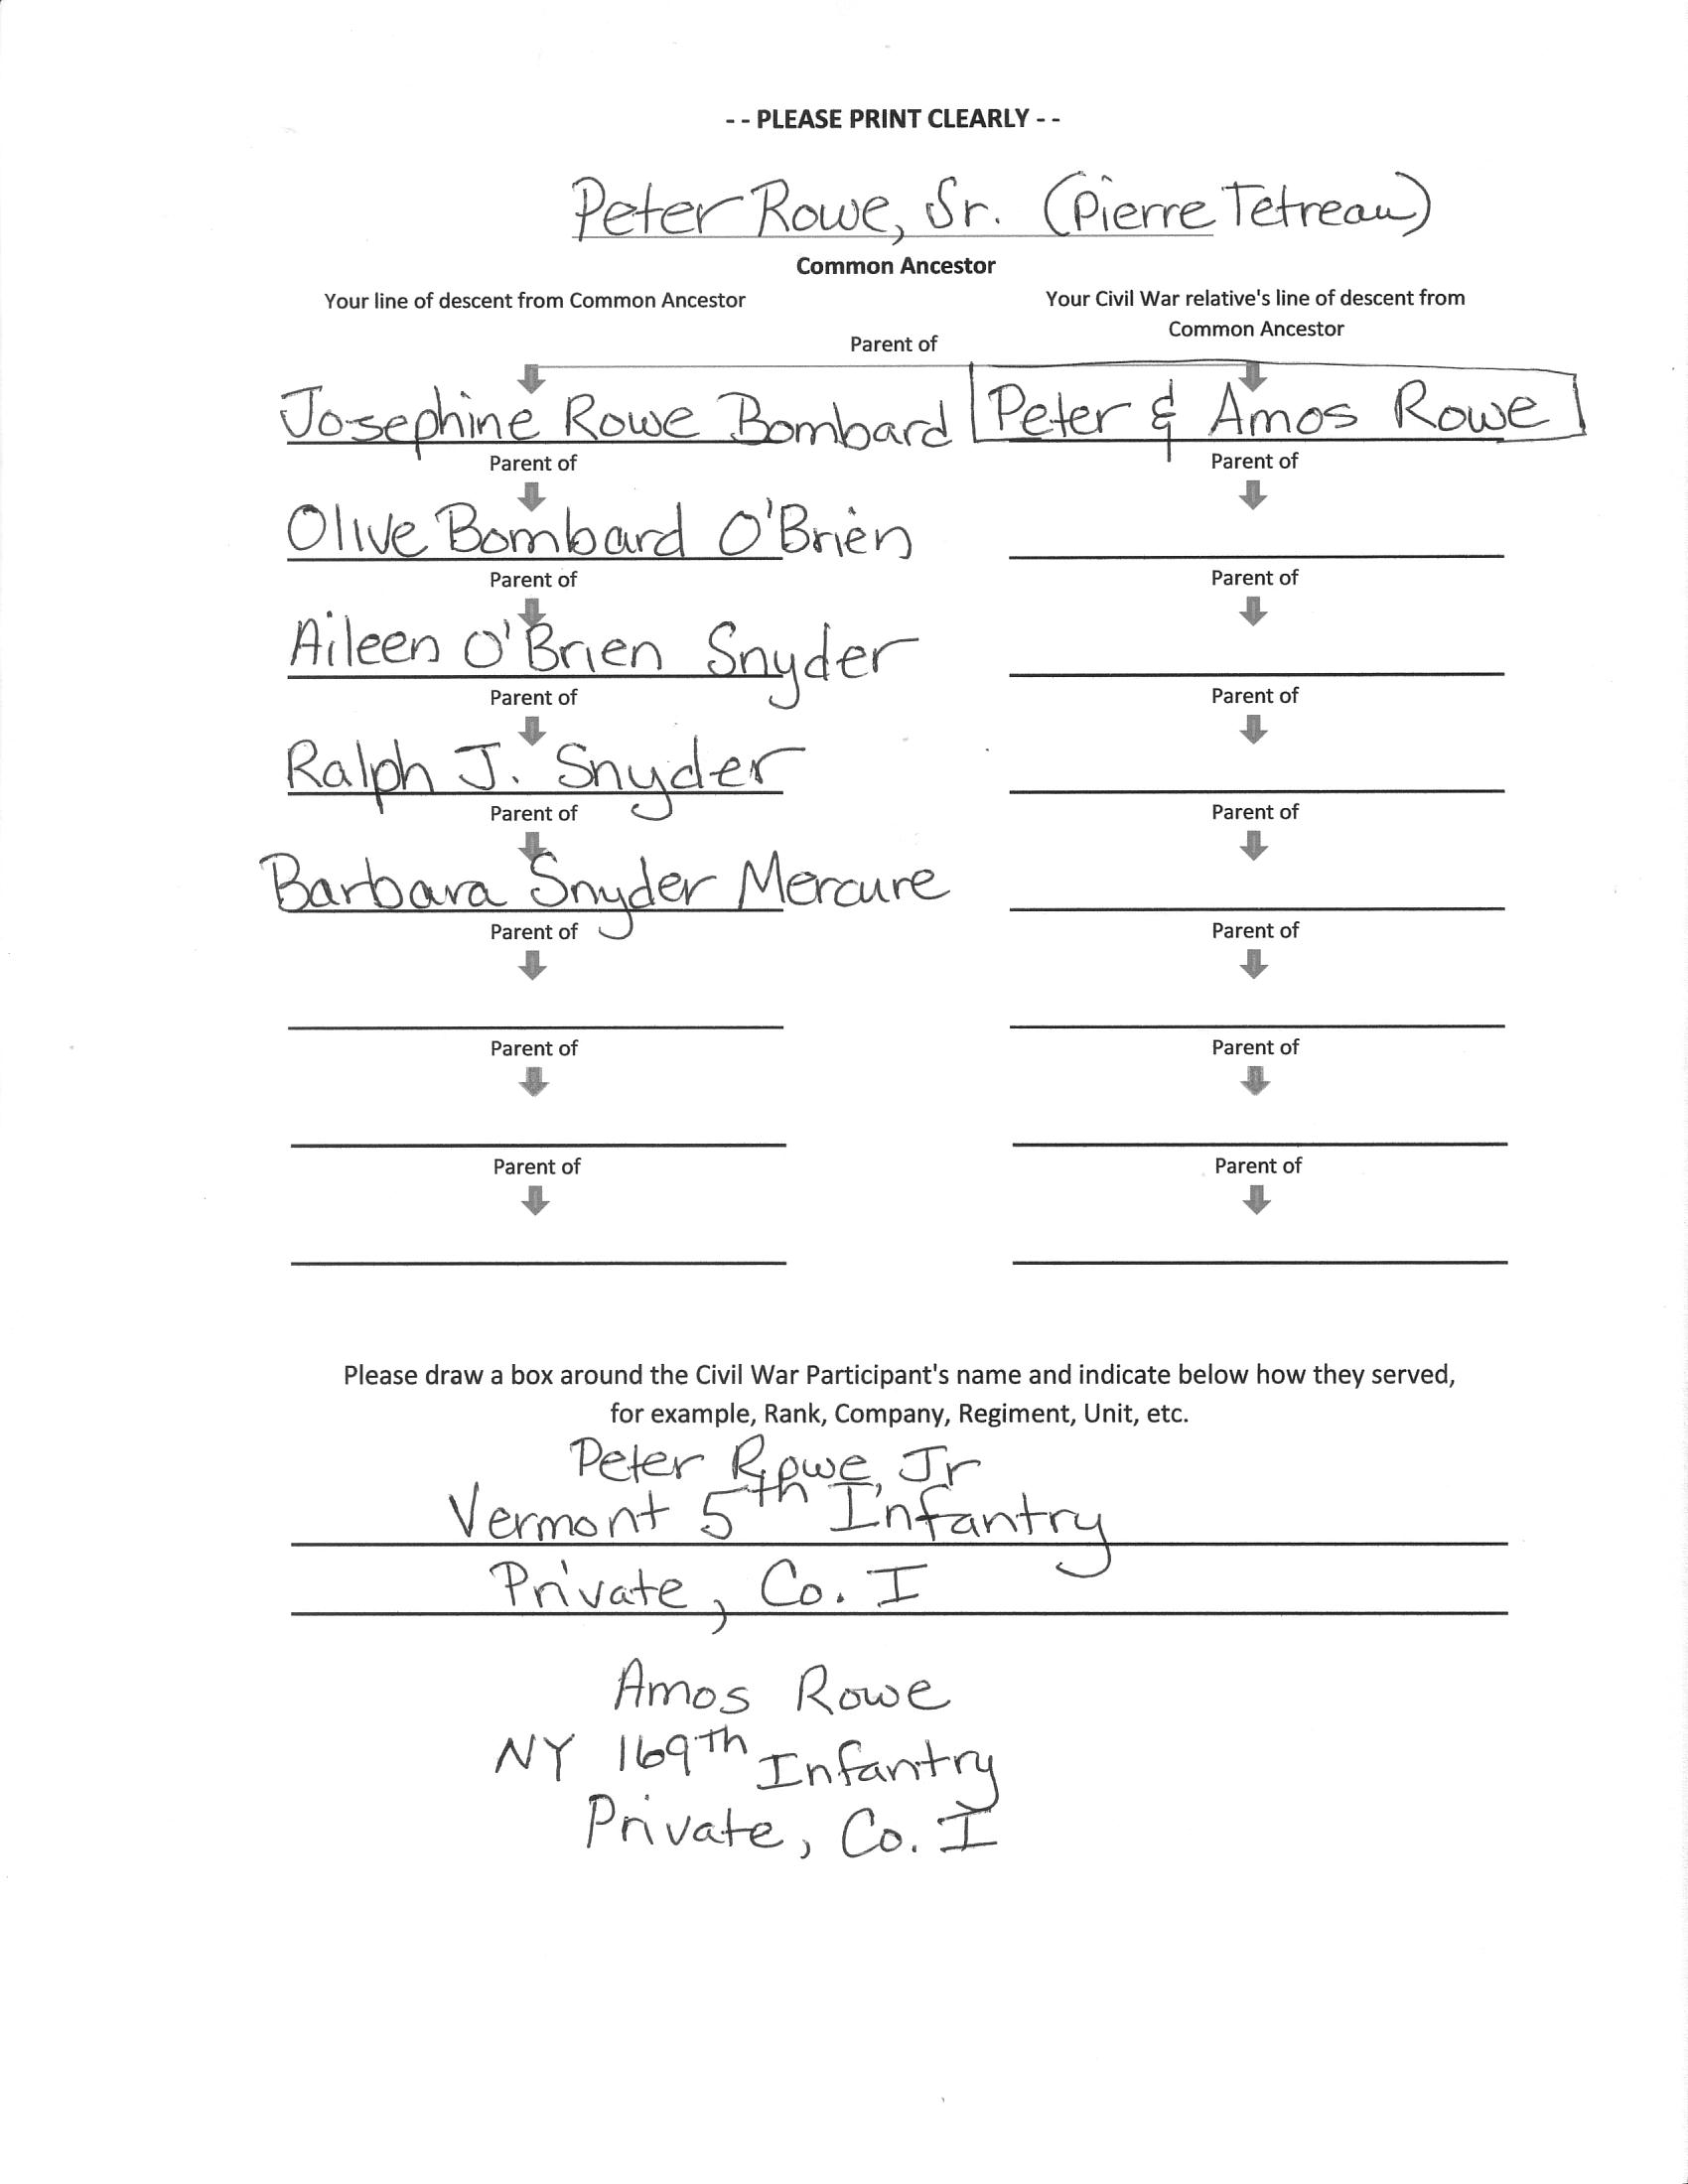 - - PLEASE PRINT CLEARLY - -
Peter Rowe, Sr. (Pierre Tetreau)
Common Ancestor
Your line of descent from Common Ancestor
Your Civil War relative's line of descent from
Common Ancestor
Parent of
Josephine Rowe Bombard
Peter & Amos Rowe
Parent of
Parent of
Olive Bombard O'Brien
Parent of
Parent of
Aileen O'Brien Snyder
Parent of
Parent of
Ralph J. Snyder
Parent of
Parent of
Barbara Snyder Mercure
Parent of
Parent of
Parent of
Parent of
Parent of
Parent of
Please draw a box around the Civil War Participant's name and indicate below how they served,
for example, Rank, Company, Regiment, Unit, etc.
Peter Rowe, Jr
Vermont 5th Infantry
Private, Co. I
Amos Rowe
NY 169th Infantry
Private, Co. I